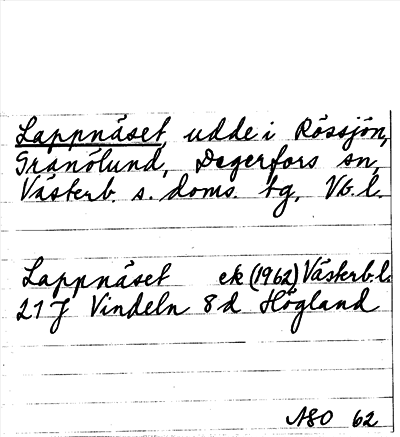 Lappnäset, udde i Rössjön,
Granölund, Degerfors sn,
Västerb. s. doms. tg, Vb. l.
Lappnäset ek (1962) Västerb. l.
21 J Vindeln 8 d Högland
ASO 62